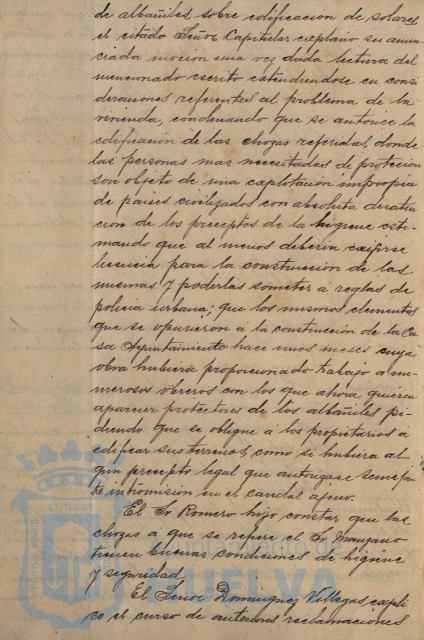 de albañiles, sobre edificacion de solares,
el citado Señor Capitular explanó su anun-
ciada mocion una vez dada lectura del
mencionado escrito estendiendose en consi
deraciones referentes al problema de la
vivienda, condenando que se autorice la
edificacion de las chozas referidas, donde
las personas mas necesitadas de proteccion
son objeto de una explotacion impropia
de paises civilizados con absoluta desaten-
cion de los preceptos de la higiene esti-
mando que al menos deberia exijirse
licencia para la construccion de las
mismas y poderlas someter á reglas de
policia urbana; que los mismos elementos
que se opusieron á la construccion de la Ca
sa Ayuntamiento hace unos meses cuya
obra hubiera proporcionado trabajo á nu-
merosos obreros con los que ahora quieren
aparecer protectores de los albañiles pi-
diendo que se obligue á los propietarios á
edificar sus terrenos, como si hubiera al
gun precepto legal que autorizase semejan
te intromision en el caudal ajeno.
El Sr Romero hizo constar que las
chozas a que se refiere el Sr Manzano
tienen buenas condiciones de higiene
y seguridad.
El Señor Dominguez Villegas expli
có el curso de anteriores reclamaciones
HUELVA